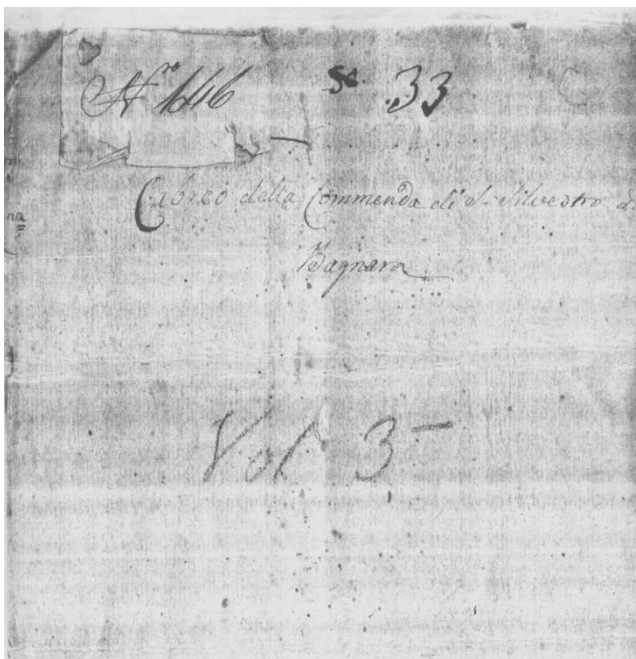 N.º 1646
33
na
Cabreo della Commenda di S. Silvestro di
Bagnara
Vol 3